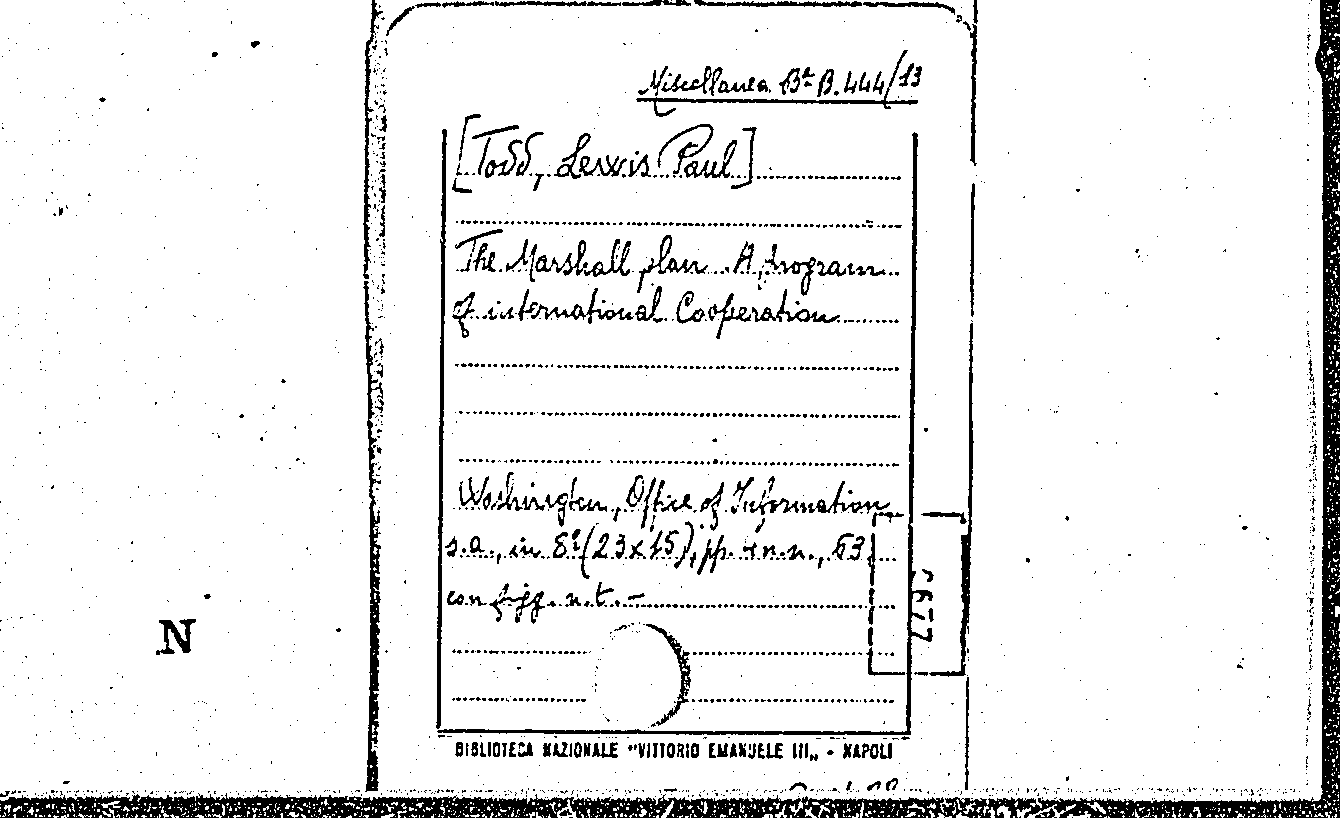 Miscellanea Bª B. 444/13
[Todd, Lewis Paul]
The Marshall plan. A program
of international Cooperation
Washington, Office of Information
s.a., in 8º (23x15), pp. n.n., 63,
con figg. n.t. –
N
BIBLIOTECA NAZIONALE "VITTORIO EMANUELE III„ - NAPOLI